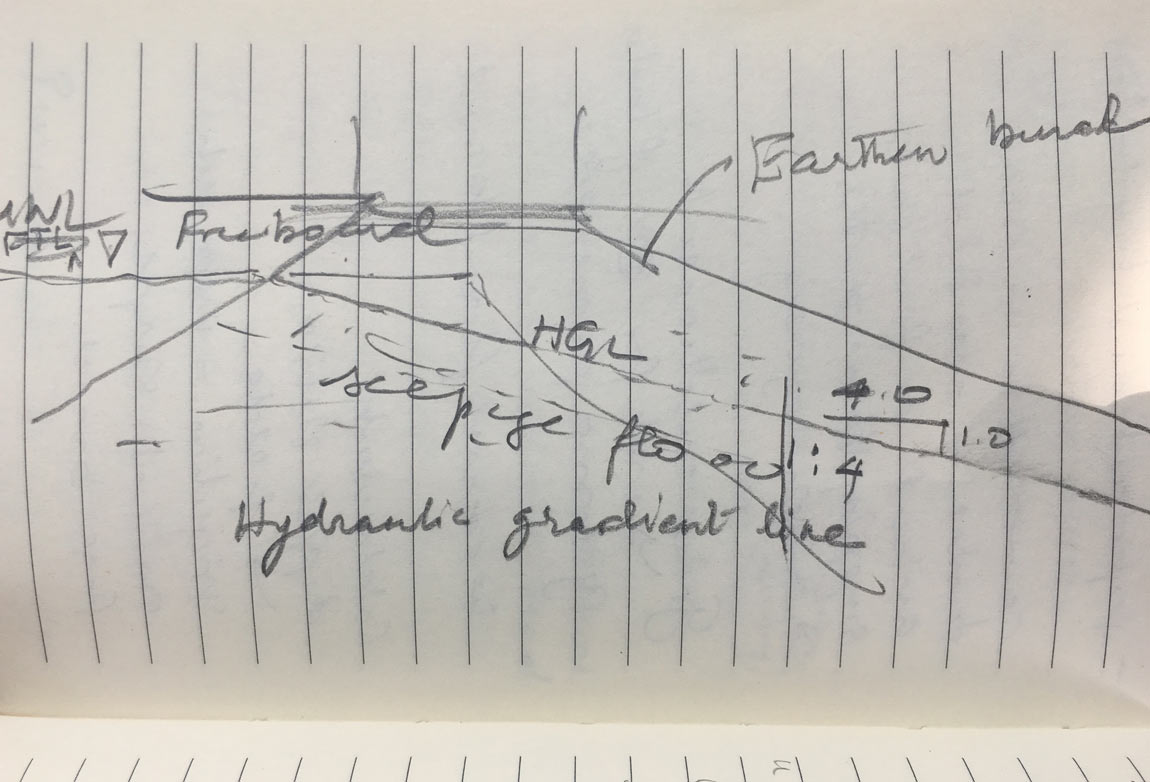 Earthen bund
MWL
FTL
Freeboard
HGL
seepage flow
4.0
1.0
1:4
Hydraulic gradient line